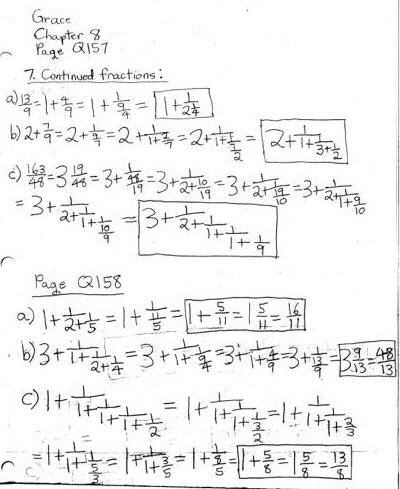 Grace
Chapter 8
Page Q157
7. Continued fractions:
a) 13/9 = 1+4/9 = 1+1/(9/4) = 1+1/(2 1/4)
b) 2+7/9 = 2+1/(9/7) = 2+1/(1+2/7) = 2+1/(1+1/(7/2)) = 2+1/(1+1/(3+1/2))
c) 163/48 = 3 19/48 = 3+1/(48/19) = 3+1/(2+10/19) = 3+1/(2+1/(19/10)) = 3+1/(2+1/(1+9/10))
= 3+1/(2+1/(1+1/(10/9))) = 3+1/(2+1/(1+1/(1+1/9)))
Page Q158
a) 1+1/(2+1/5) = 1+1/(11/5) = 1+5/11 = 1 5/11 = 16/11
b) 3+1/(1+1/(2+1/4)) = 3+1/(1+1/(9/4)) = 3+1/(1+4/9) = 3+1/(13/9) = 3 9/13 = 48/13
c) 1+1/(1+1/(1+1/(1+1/2))) = 1+1/(1+1/(1+1/(3/2))) = 1+1/(1+1/(1+2/3))
= 1+1/(1+1/(5/3)) = 1+1/(1+3/5) = 1+1/(8/5) = 1+5/8 = 1 5/8 = 13/8